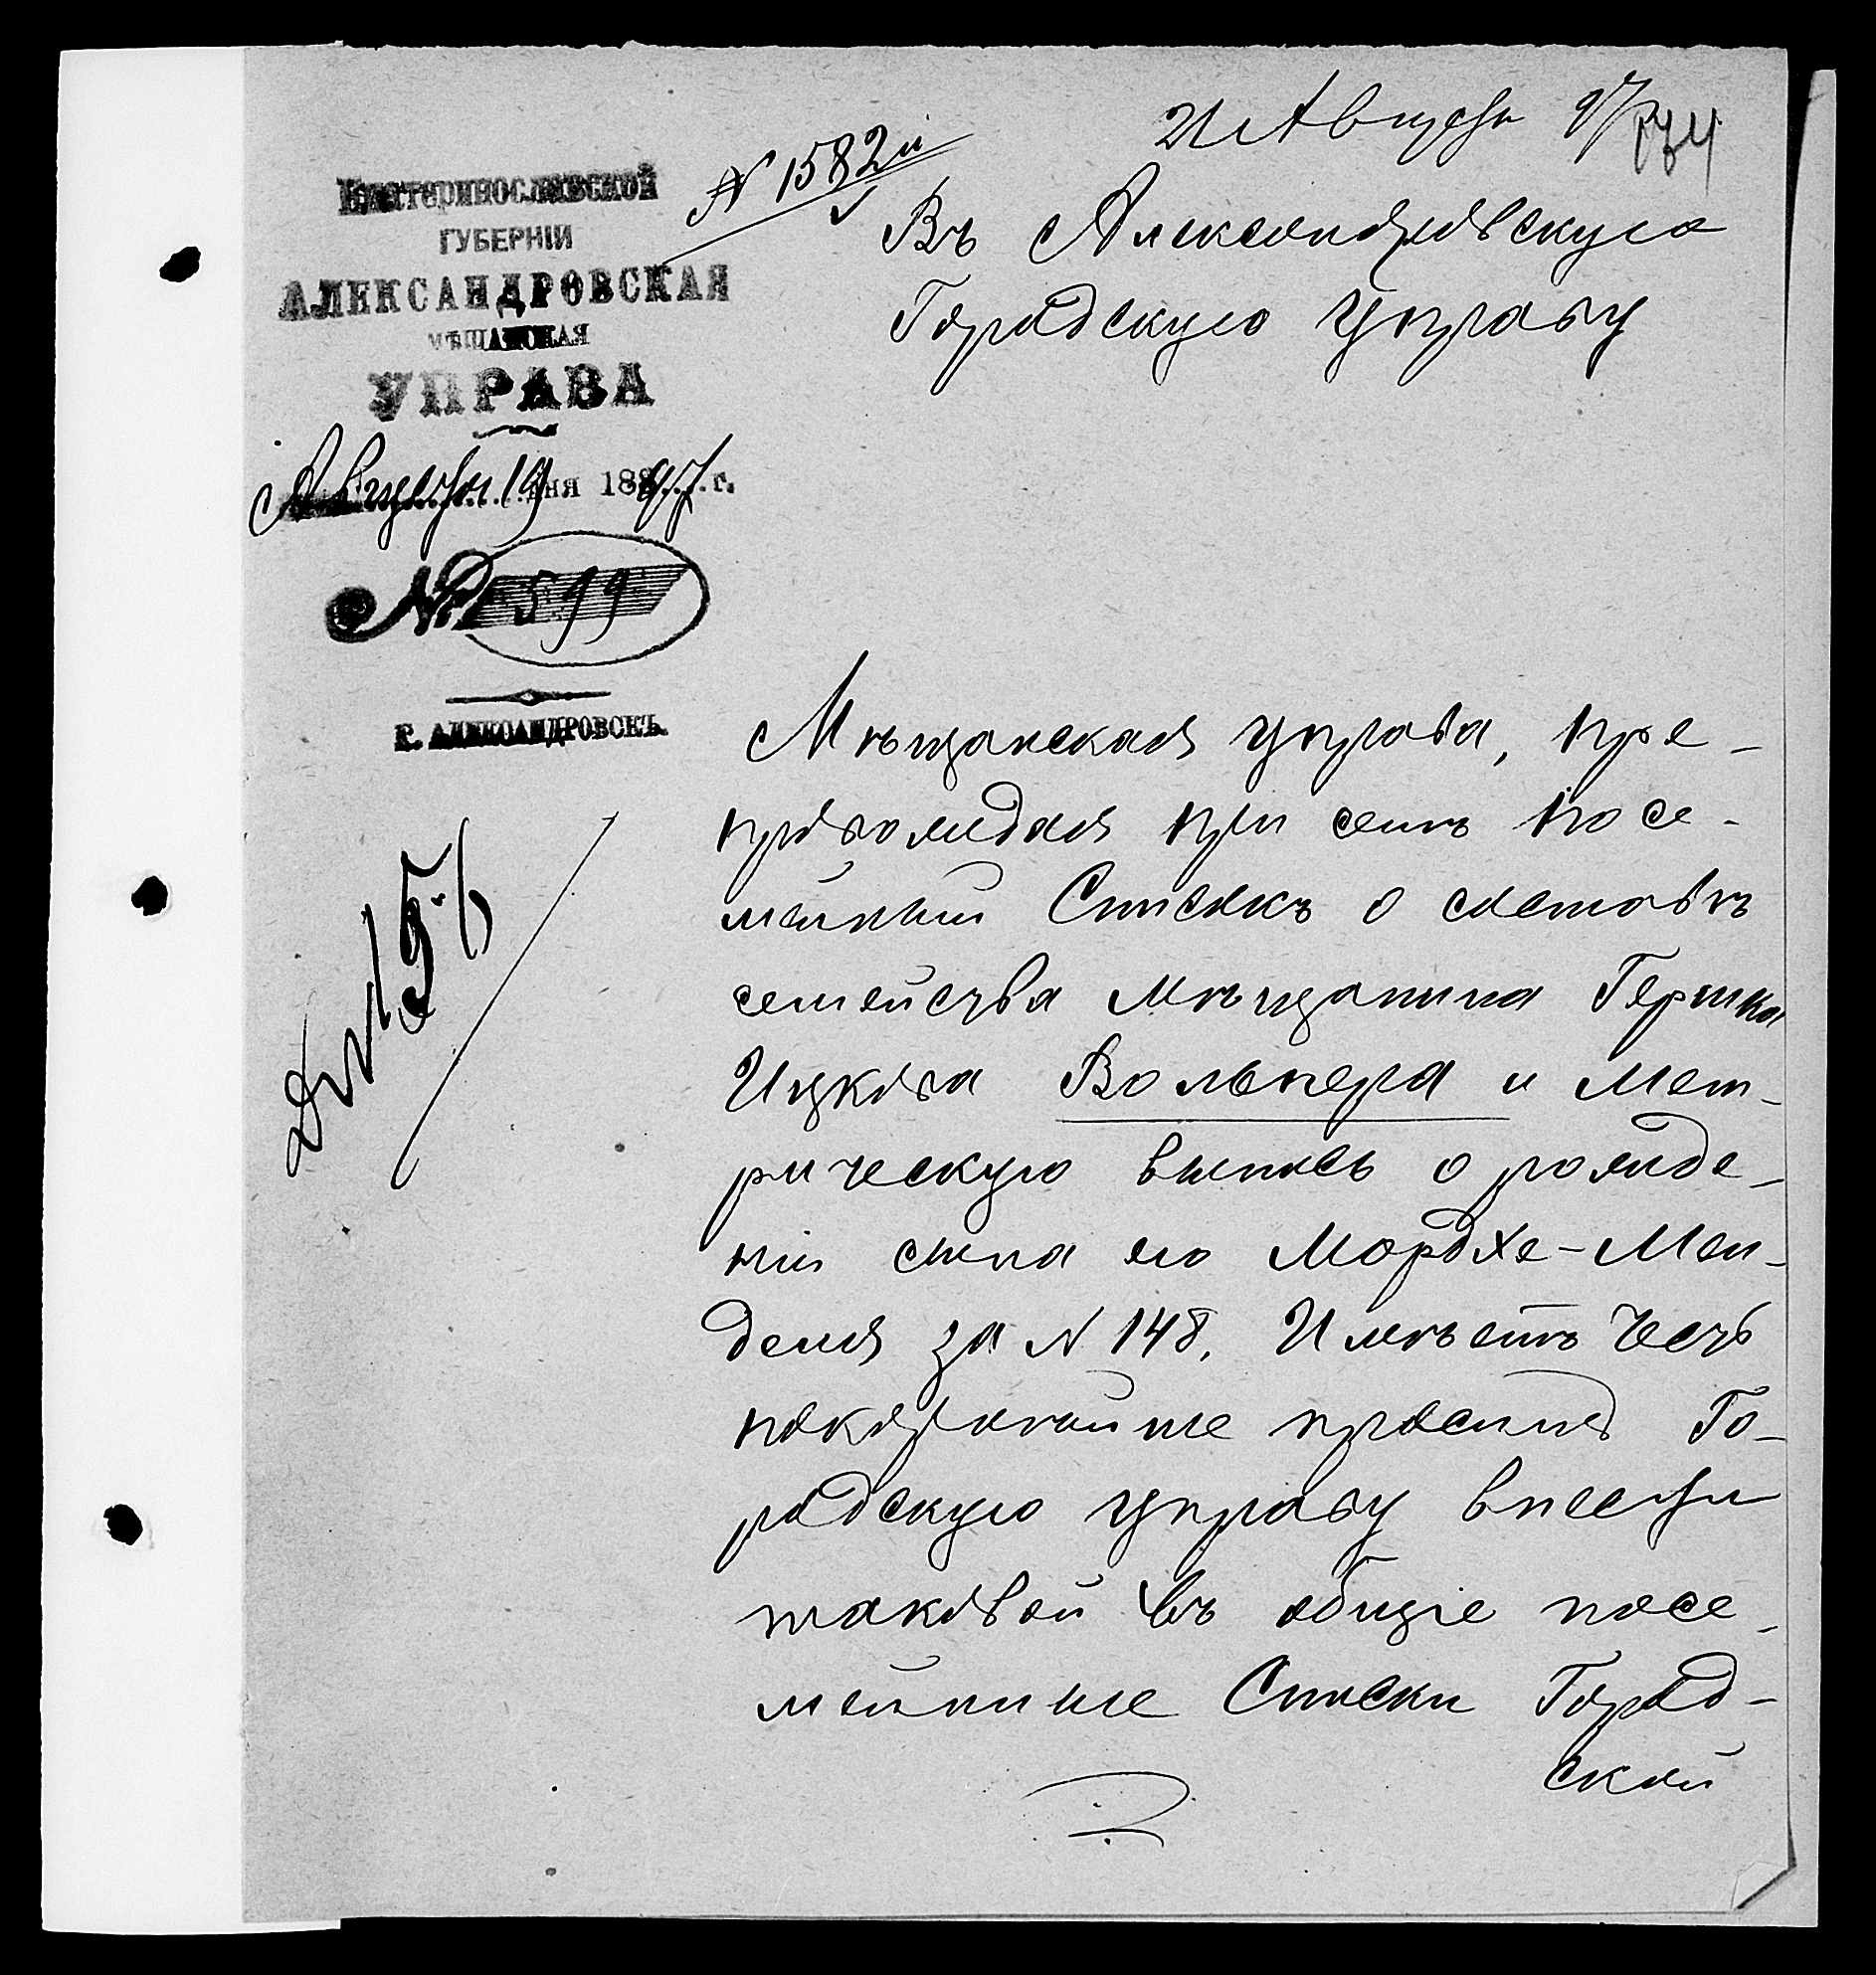 21 Августа 97
174
№ 1582
Екатеринославской
ГУБЕРНІИ
АЛЕКСАНДРОВСКАЯ
МѢЩАНСКАЯ
УПРАВА
Августа 19 дня 1897 г.
№ 599
Г. АЛЕКСАНДРОВСКЪ.
Въ Александровскую
Городскую Управу
Мѣщанская управа, пре-
провождая при семъ посе-
мейный Списокъ о составѣ
семейства Мѣщанина Гершка
Ицкова Вольпера и Мет-
рическую выпись о рожде-
ніи сына его Мордхе-Мен-
деля за № 148, Имѣетъ Честь
покорнѣйше проситъ Го-
родскую управу внести
таковой въ общіе посе-
мейныые Списки Город-
ской